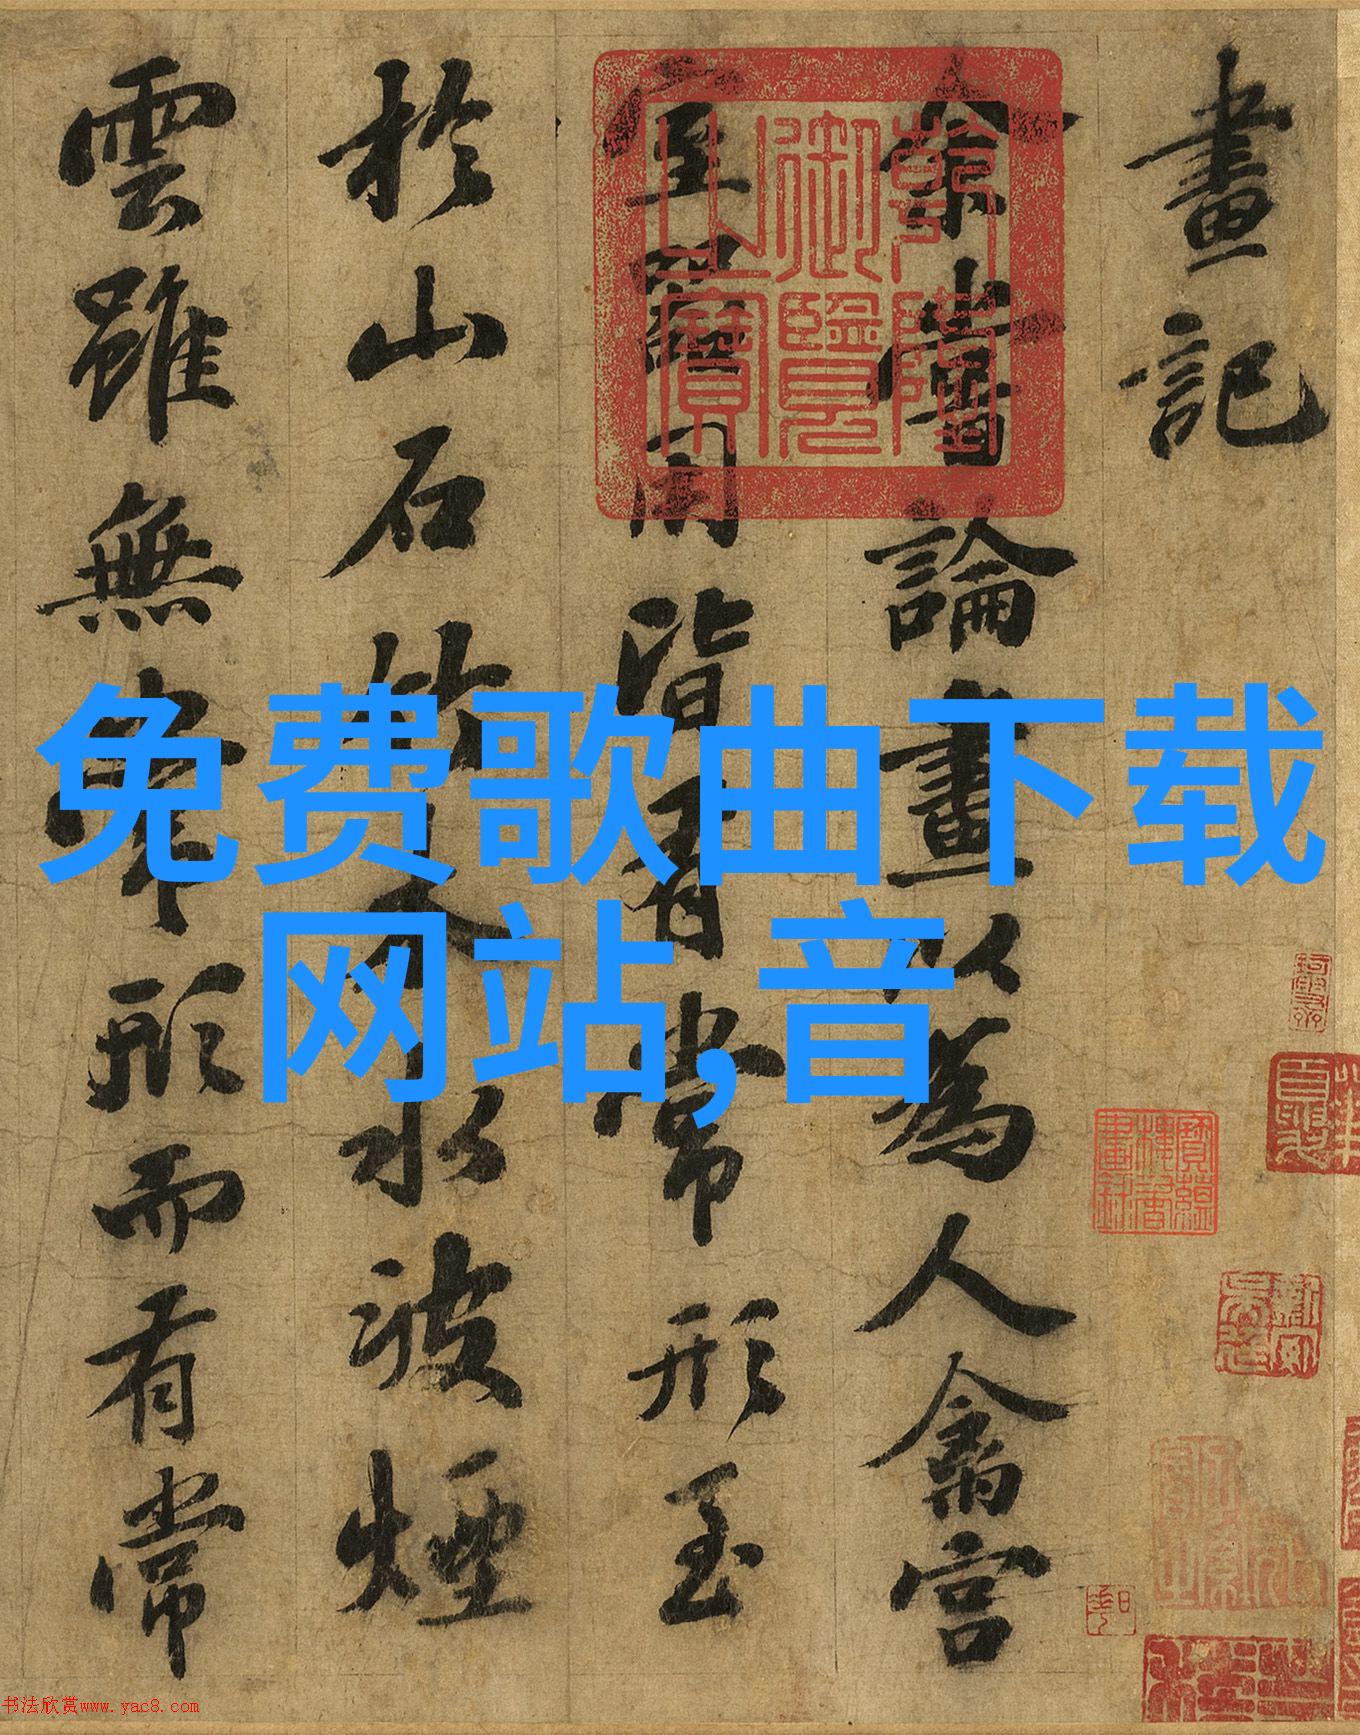 畫記
余嘗論畫以為人禽宮
室器用皆有常形至
於山石竹木水波煙
雲雖無常形而有常
乾隆
御覽
之寶
免费歌曲下载
网站,音
寶蘊
樓書
畫錄
书法欣赏www.yac8.com